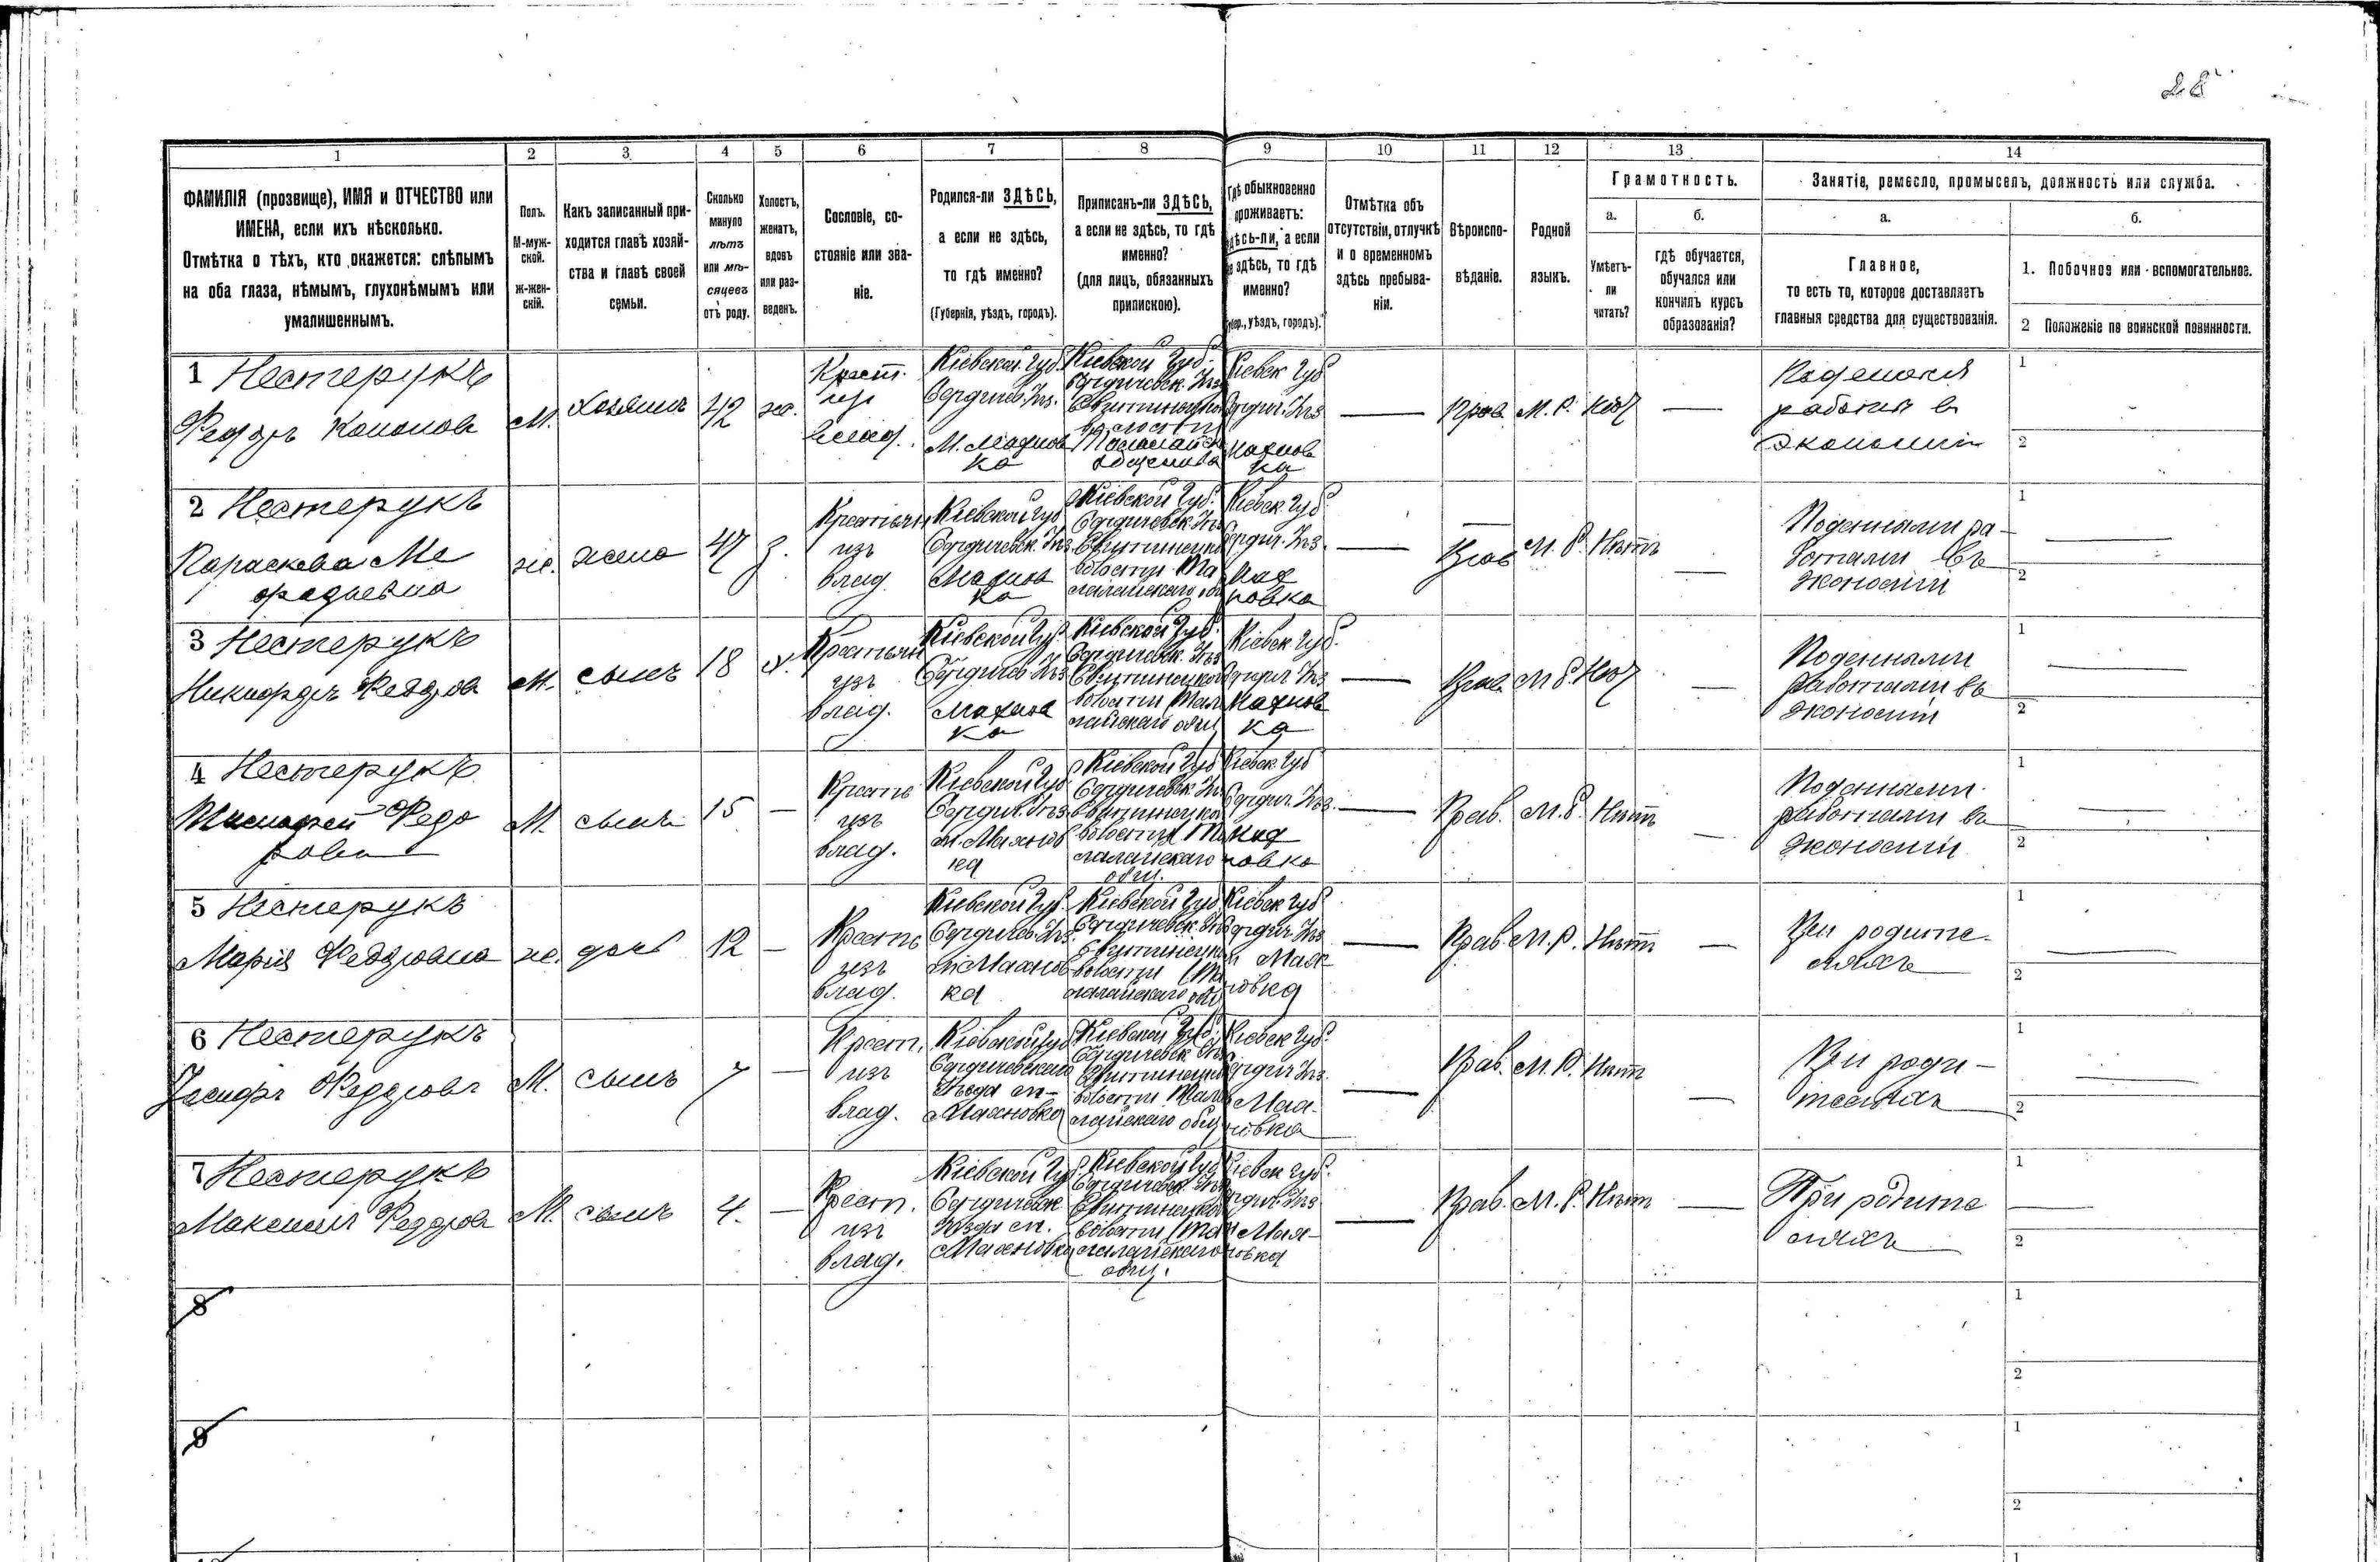 28
1 2 3 4 5 6 7 8 9 10 11 12 13 14
ФАМИЛІЯ (прозвище), ИМЯ и ОТЧЕСТВО или
ИМЕНА, если ихъ нѣсколько.
Отмѣтка о тѣхъ, кто окажется: слѣпымъ
на оба глаза, нѣмымъ, глухонѣмымъ или
умалишеннымъ.
Полъ.
М-муж-
ской.
ж-жен-
скій.
Какъ записанный при-
ходится главѣ хозяй-
ства и главѣ своей
семьи.
Сколько
минуло
лѣтъ
или мѣ-
сяцевъ
отъ роду.
Холостъ,
женатъ,
вдовъ
или раз-
веденъ.
Сословіе, со-
стояніе или зва-
ніе.
Родился-ли ЗДѢСЬ,
а если не здѣсь,
то гдѣ именно?
(Губернія, уѣздъ, городъ).
Приписанъ-ли ЗДѢСЬ,
а если не здѣсь, то гдѣ
именно?
(для лицъ, обязанныхъ
припискою).
Гдѣ обыкновенно
проживаетъ:
здѣсь-ли, а если
не здѣсь, то гдѣ
именно?
(Губер., уѣздъ, городъ).
Отмѣтка объ
отсутствіи, отлучкѣ
и о временномъ
здѣсь пребыва-
ніи.
Вѣроиспо-
вѣданіе.
Родной
языкъ.
Грамотность.
а.
Умѣетъ-
ли
читать?
б.
гдѣ обучается,
обучался или
кончилъ курсъ
образованія?
Занятіе, ремесло, промыселъ, должность или служба.
а.
Главное,
то есть то, которое доставляетъ
главныя средства для существованія.
б.
1. Побочное или вспомогательное.
2 Положеніе по воинской повинности.
1 Нестерукъ
Федоръ Кононовъ
М.
хозяинъ
42
ж.
Крест.
изъ
влад.
Кіевской Губ.
Бердичев. Уѣз.
М. Махнов
ка
Кіевской Губ.
Бердичевск. Уѣз
волости
Кіевск Губ
Бердич. Уѣз
Махнов
ка
Прав.
М. Р.
—
работы въ
экономіи
1
2
2 Нестерукъ
Параскева Ме
фодьевна
ж.
жена
47
з.
Крестьян
изъ
влад.
Кіевской Губ
Бердичевск. Уѣз
Махнов
ка
Кіевской Губ.
Бердичевск. Уѣз
волости
Кіевск Губ
Бердич. Уѣз.
Мах
новка
Прав
М. Р.
Нѣтъ
—
Поденными ра-
ботами въ
экономіи
1
2
3 Нестерукъ
Никифоръ Федоров
М.
сынъ
18
х.
Крестьян
изъ
влад.
Кіевской Губ.
Бердичев Уѣз
Махнов
ка
Кіевской Губ.
Бердичевск. Уѣз
волости
Кіевск Губ.
Бердич Уѣз
Махнов
ка
Прав.
М Р.
—
Поденными
работами въ
экономіи
1
2
4 Нестерукъ
Федо
рови
М.
сынъ
15
—
Кресть
изъ
влад.
Кіевской Губ
Бердич. Уѣз.
м. Махнов
ка
Кіевской Губ
Бердичевск Уѣз
волости
общ.
Кіевск Губ
Бердич. Уѣз.
Мах
новка
Прав.
М. Р.
Нѣтъ
—
Поденными
работами въ
экономіи
1
2
5 Нестерукъ
Марія Федоровна
ж.
дочь
12
—
Кресть
изъ
влад.
Кіевской Губ.
Бердичев. Уѣз.
м. Махнов
ка
Кіевской Губ
Бердичевск. Уѣз
волости
Кіевск Губ
Бердич Уѣз
Мах
новка
Прав.
М. Р.
Нѣтъ
—
При родите-
ляхъ
1
2
6 Нестерукъ
Іосифъ Федоровъ
М.
сынъ
7
—
Крест.
изъ
влад.
Кіевской Губ
Бердичевскаго
Уѣзда м-
Махновка
Кіевской Губ.
Бердичевск Уѣз
волости
Кіевск Губ.
Бердич Уѣз.
Мах-
новка
Прав.
М. Р.
Нѣтъ
—
При роди-
теляхъ
1
2
7 Нестерукъ
Максимъ Федоров
М.
сынъ
4.
—
Крест.
изъ
влад.
Кіевской Губ.
Бердичевск
Уѣзда м.
Махновка
Кіевской Губ
Бердичевск. Уѣз
волости
общ.
Кіевск Губ.
Бердич. Уѣз
Мах-
новка
Прав.
М. Р.
Нѣтъ
—
При родите
ляхъ
1
2
8
1
2
9
1
2
1